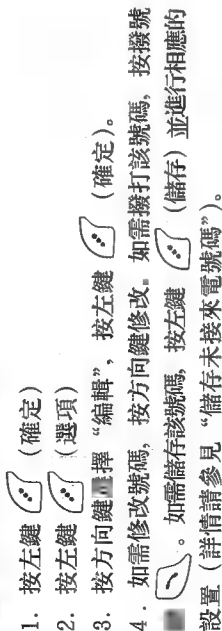 1. 按左鍵 (確定)
2. 按左鍵 (選項)
3. 按方向鍵擇 “編輯”, 按左鍵 (確定)。
4. 如需修改號碼, 按方向鍵修改。如需撥打該號碼, 按撥號
。如需儲存該號碼, 按左鍵 (儲存) 並進行相應的
設置 (詳情請參見 “儲存未接來電號碼”)。